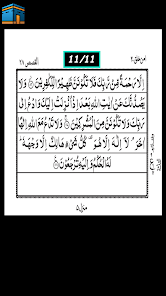 امن خلق ٢٠ 11/11 القصص ٢٨
اِلَّا رَحْمَةً مِّنْ رَّبِّكَ فَلَا تَكُوْنَنَّ ظَهِيْرًا لِّلْكٰفِرِيْنَ وَلَا
يَصُدُّنَّكَ عَنْ اٰيٰتِ اللّٰهِ بَعْدَ اِذْ اُنْزِلَتْ اِلَيْكَ وَادْعُ اِلٰى
رَبِّكَ وَلَا تَكُوْنَنَّ مِنَ الْمُشْرِكِيْنَ وَلَا تَدْعُ مَعَ اللّٰهِ اِلٰهًا
اٰخَرَ لَآ اِلٰهَ اِلَّا هُوَ كُلُّ شَيْءٍ هَالِكٌ اِلَّا وَجْهَهٗ
لَهُ الْحُكْمُ وَاِلَيْهِ تُرْجَعُوْنَ
منزل ٥